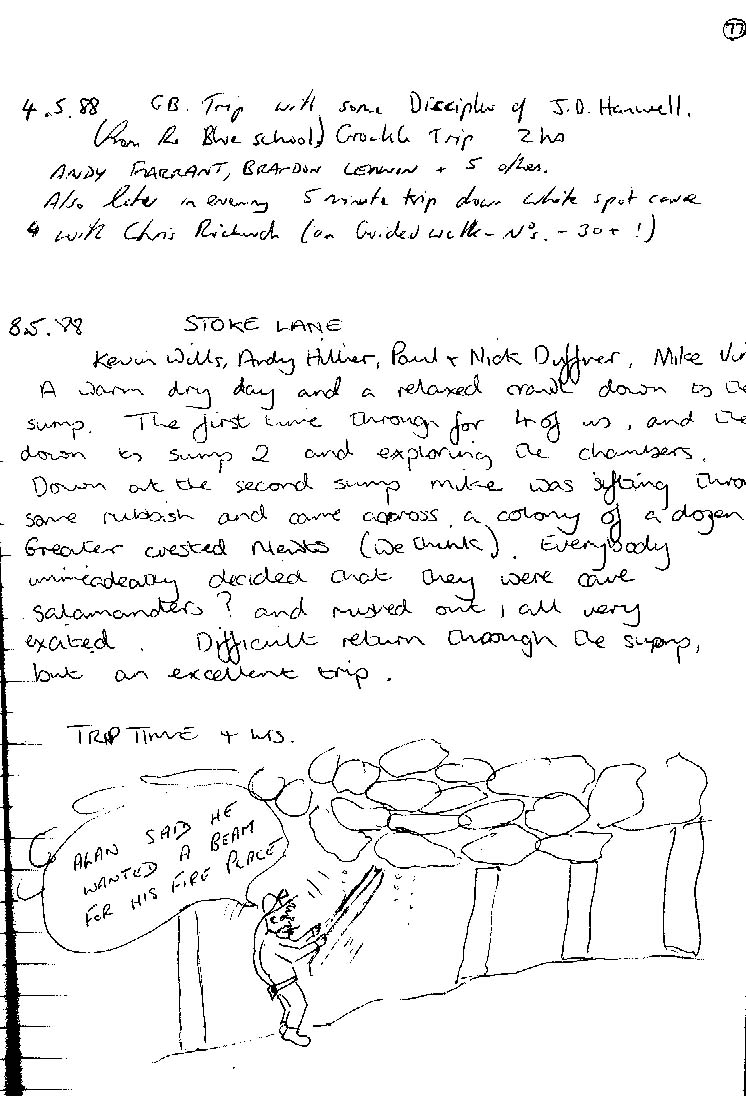 77
4.5.88 GB. Trip with some Disciples of J.D. Hanwell.
(from the Blue school) Crockle Trip 2 hrs
ANDY FARRANT, BRANDON LENNIN + 5 others.
Also later in evening 5 minute trip down white spot cave
with Chris (on Guided walk - No's. - 30+ !)
8.5.88 STOKE LANE
Kevin Wills, Andy Hillier, Paul + Nick Duffner, Mike
A warm dry day and a relaxed crawl down to the
sump. The first time through for 4 of us, and the
down to sump 2 and exploring the chambers.
Down at the second sump mike was sifting thro
some rubbish and came across a colony of a dozen
Greater crested Newts (we think). Everybody
immeadeatly decided that they were cave
salamanders? and rushed out, all very
excited. Difficult return through the sump,
but an excellent trip.
TRIP TIME 4 hrs.
ALAN SAID HE
WANTED A BEAM
FOR HIS FIRE PLACE